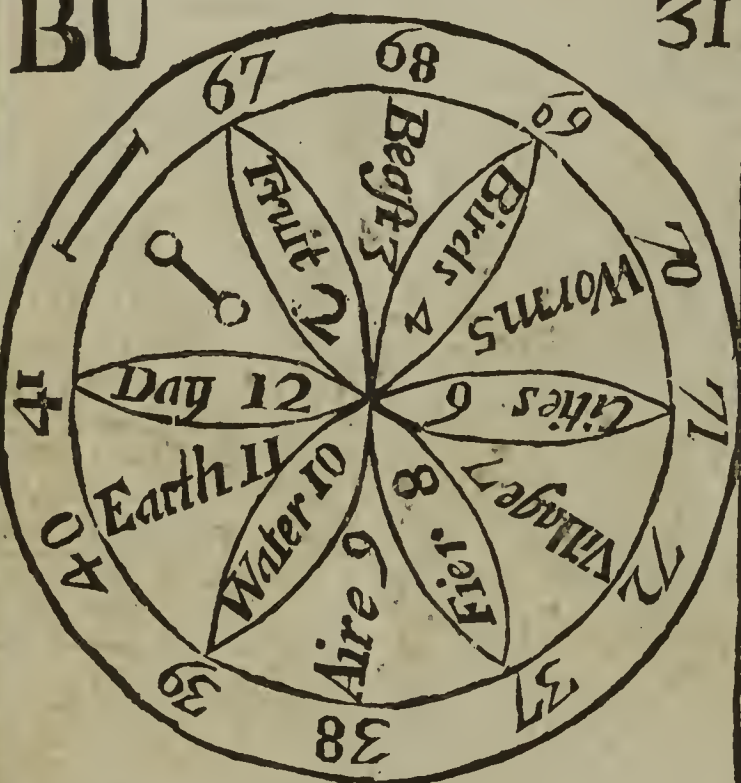 BU
31
67
68
69
70
71
72
37
38
39
40
41
Fruit 2
Beaſt 3
Birds 4
Worm 5
Cities 6
Village 7
Fier 8
Aire 9
Water 10
Earth 11
Day 12